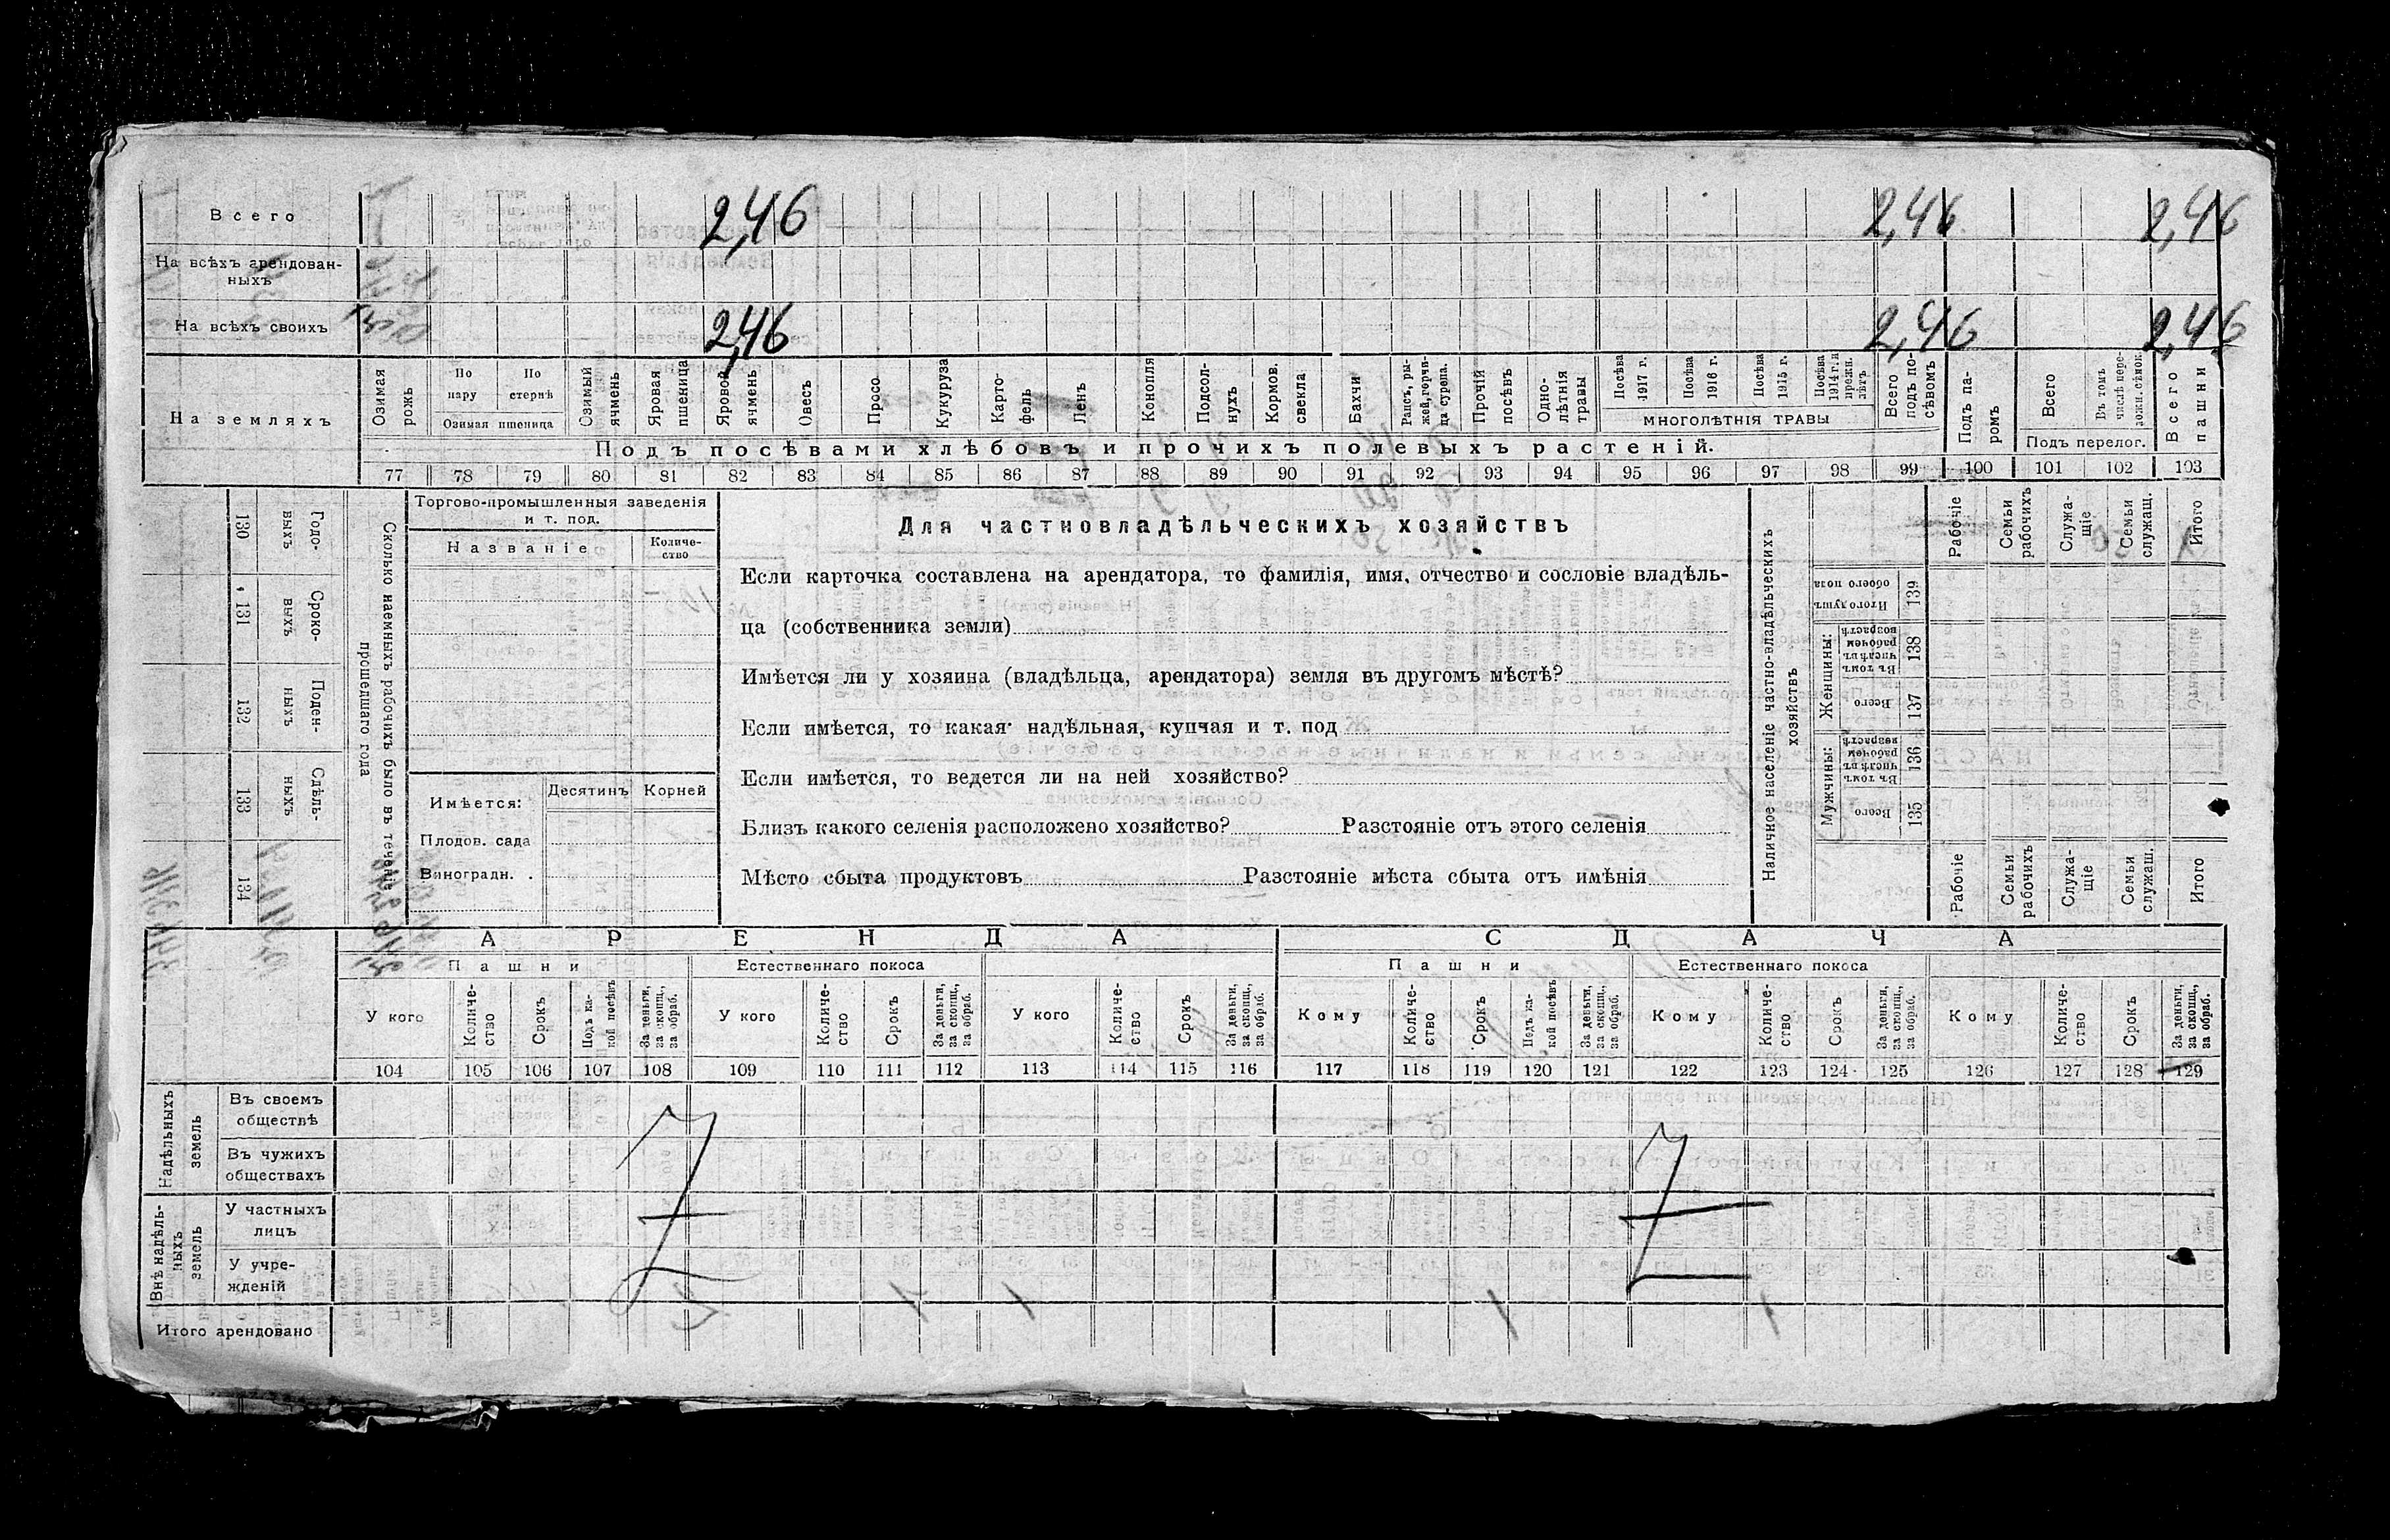 Всего 2,46 2,46 2,46
На всѣхъ арендован-
ныхъ
На всѣхъ своихъ 2,46 2,46 2,46
На земляхъ
Озимая рожь
По пару
По стернѣ
Озимая пшеница
Озимый ячмень
Яровая пшеница
Яровой ячмень
Овесъ
Просо
Кукуруза
Карто-
фель
Ленъ
Конопля
Подсол-
нухъ
Кормов. свекла
Бахчи
Рапсъ, ры-
жей, горчи-
ца сурепа.
Прочій посѣвъ
Одно-
лѣтнія травы
Посѣва 1917 г.
Посѣва 1916 г.
Посѣва 1915 г.
Посѣва 1914 г. и прежн. лѣтъ
МНОГОЛѢТНІЯ ТРАВЫ
Всего подъ по-
сѣвомъ
Подъ па-
ромъ
Всего
Въ томъ числѣ пере-
ложн. сѣнок.
Подъ перелог.
Всего пашни
Подъ посѣвами хлѣбовъ и прочихъ полевыхъ растеній.
77 78 79 80 81 82 83 84 85 86 87 88 89 90 91 92 93 94 95 96 97 98 99 100 101 102 103
130 Годо-
выхъ
131 Сроко-
выхъ
132 Поден-
ныхъ
133 Сдѣль-
ныхъ
134
Сколько наемныхъ рабочихъ было въ теченіе
прошедшаго года
Торгово-промышленныя заведенія
и т. под.
Названіе
Количе-
ство
Имѣется:
Десятинъ Корней
Плодов. сада
Виноградн. .
Для частновладѣльческихъ хозяйствъ
Если карточка составлена на арендатора, то фамилія, имя, отчество и сословіе владѣль-
ца (собственника земли)
Имѣется ли у хозяина (владѣльца, арендатора) земля въ другомъ мѣстѣ?
Если имѣется, то какая: надѣльная, купчая и т. под
Если имѣется, то ведется ли на ней хозяйство?
Близъ какого селенія расположено хозяйство? Разстояніе отъ этого селенія
Мѣсто сбыта продуктовъ Разстояніе мѣста сбыта отъ имѣнія
Наличное населеніе частно-владѣльческихъ
хозяйствъ
Рабочіе
Семьи рабочихъ
Служа-
щіе
Семьи служащ.
Итого
Итого душъ обоего пола 139
Женщины:
Въ томъ числѣ въ рабочемъ возрастѣ 138
Всего 137
Мужчины:
Въ томъ числѣ въ рабочемъ возрастѣ 136
Всего 135
Рабочіе
Семьи рабочихъ
Служа-
щіе
Семьи служащ.
Итого
АРЕНДА СДАЧА
Пашни Естественнаго покоса Пашни Естественнаго покоса
У кого
Количе-
ство
Срокъ
Подъ ка-
кой посѣвъ
За деньги, за скопщ., за обраб.
У кого
Количе-
ство
Срокъ
За деньги, за скопщ., за обраб.
У кого
Количе-
ство
Срокъ
За деньги, за скопщ., за обраб.
Кому
Количе-
ство
Срокъ
Подъ ка-
кой посѣвъ
За деньги, за скопщ., за обраб.
Кому
Количе-
ство
Срокъ
За деньги, за скопщ., за обраб.
Кому
Количе-
ство
Срокъ
За деньги, за скопщ., за обраб.
104 105 106 107 108 109 110 111 112 113 114 115 116 117 118 119 120 121 122 123 124 125 126 127 128 129
Надѣльныхъ
земель
Въ своемъ
обществѣ
Въ чужихъ
обществахъ
Внѣ надѣль-
ныхъ
земель
У частныхъ
лицъ
У учре-
жденій
Итого арендовано